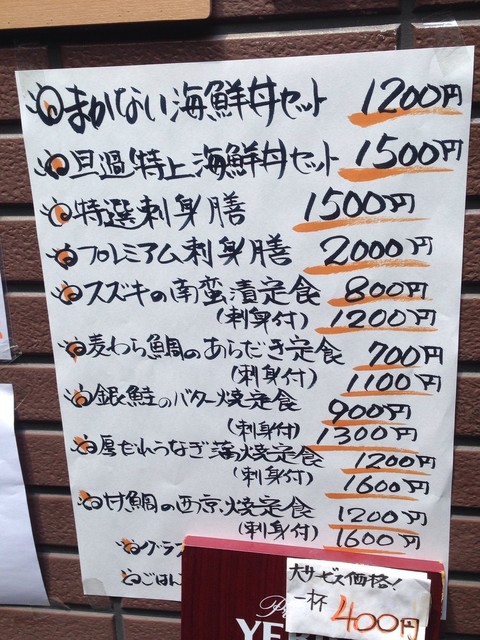 まかない海鮮丼セット 1200円
旦過特上海鮮丼セット 1500円
特選刺身膳 1500円
プレミアム刺身膳 2000円
スズキの南蛮漬定食 800円
(刺身付) 1200円
麦わら鯛のあらだき定食 700円
(刺身付) 1100円
銀鮭のバター焼定食 900円
(刺身付) 1300円
厚せんうなぎ蒲焼定食 1200円
(刺身付) 1600円
甘鯛の西京焼定食 1200円
(刺身付) 1600円
グラ
ごはん
大サービス価格!
一杯 400円
YE